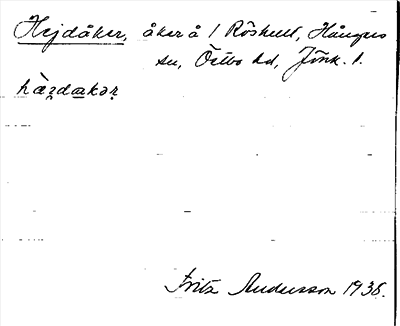 Hejdåker, åker å 1 Röshult, Hångers
sn, Östbo hd, Jönk. l.
hàr̥dakər
Fritz Andersson 1936.